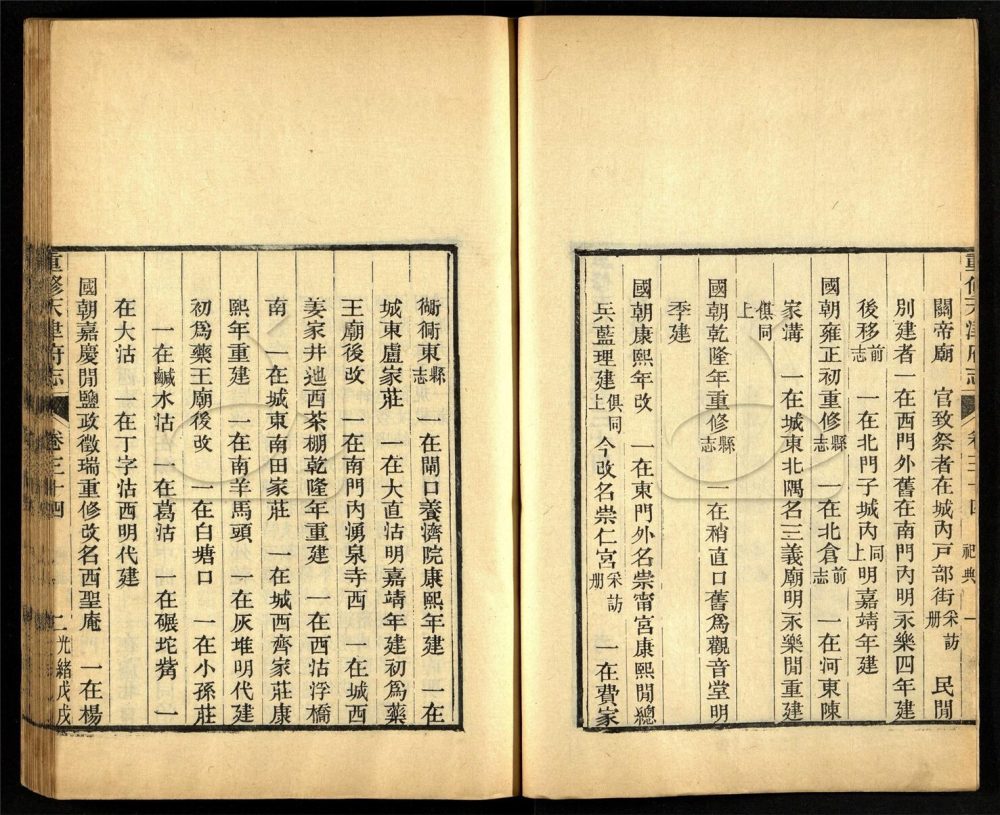 重修天津府志 卷三十四 祀典 一
關帝廟 官致祭者在城內戸部街采訪册 民閒
別建者一在西門外舊在南門內明永樂四年建
後移前志 一在北門子城內同上明嘉靖年建
國朝雍正初重修縣志 一在北倉前志 一在河東陳
家溝 一在城東北隅名三義廟明永樂閒重建
俱同上
國朝乾隆年重修縣志 一在稍直口舊爲觀音堂明
季建
國朝康熙年改 一在東門外名崇甯宮康熙閒總
兵藍理建俱同上今改名崇仁宮采訪册 一在費家
衚衕東縣志 一在閘口養濟院康熙年建 一在
城東盧家莊 一在大直沽明嘉靖年建初爲藥
王廟後改 一在南門內湧泉寺西 一在城西
姜家井迤西茶棚乾隆年重建 一在西沽浮橋
南 一在城東南田家莊 一在城西齊家莊康
熙年重建 一在南羊馬頭 一在灰堆明代建
初爲藥王廟後改 一在白塘口 一在小孫莊
一在鹹水沽 一在葛沽 一在碾坨觜 一
在大沽 一在丁字沽西明代建
國朝嘉慶閒鹽政徵瑞重修改名西聖庵 一在楊
重修天津府志 卷三十四 二 光緒戊戌